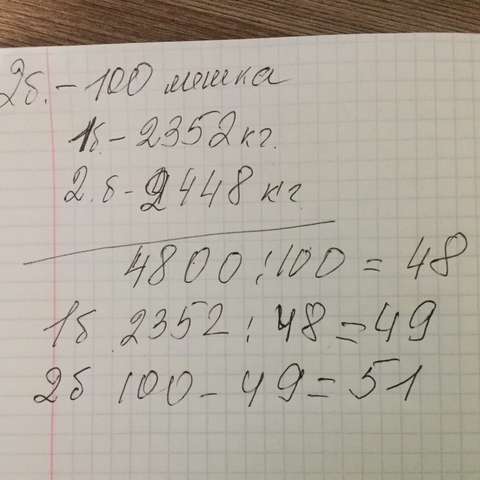 2б. - 100 мешка
1б - 2352 кг.
2.б - 2448 кг
4800 : 100 = 48
1б 2352 : 48 = 49
2б 100 - 49 = 51